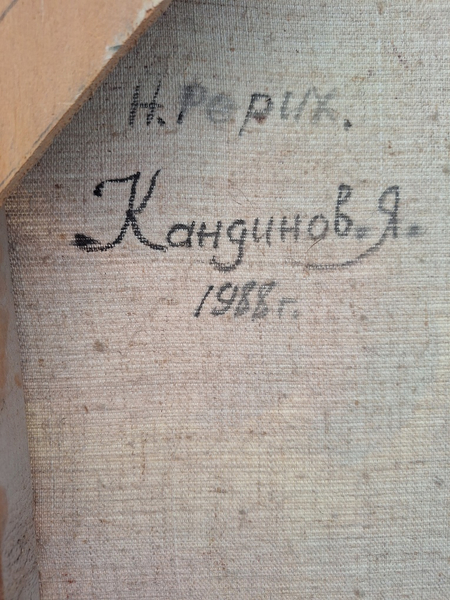 Н. Рерих.
Кандинов. Я.
1988 г.